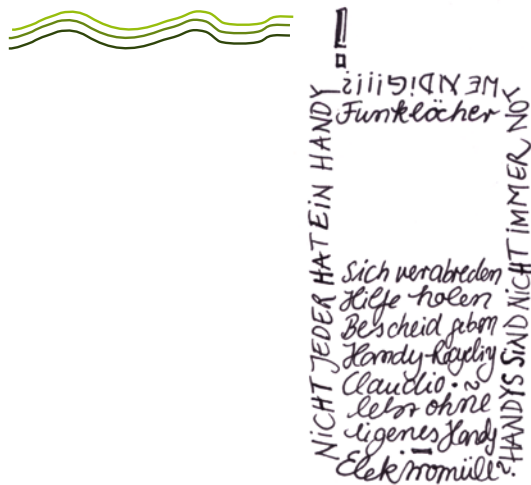 NiCHT JEDER HAT EiN HANDY
HANDYS SiND NiCHT iMMER NOT
WENDiG
Funklöcher
Sich verabreden
Hilfe holen
Bescheid geben
Handy-
Claudio
lebt ohne
eigenes Handy
Elektromüll